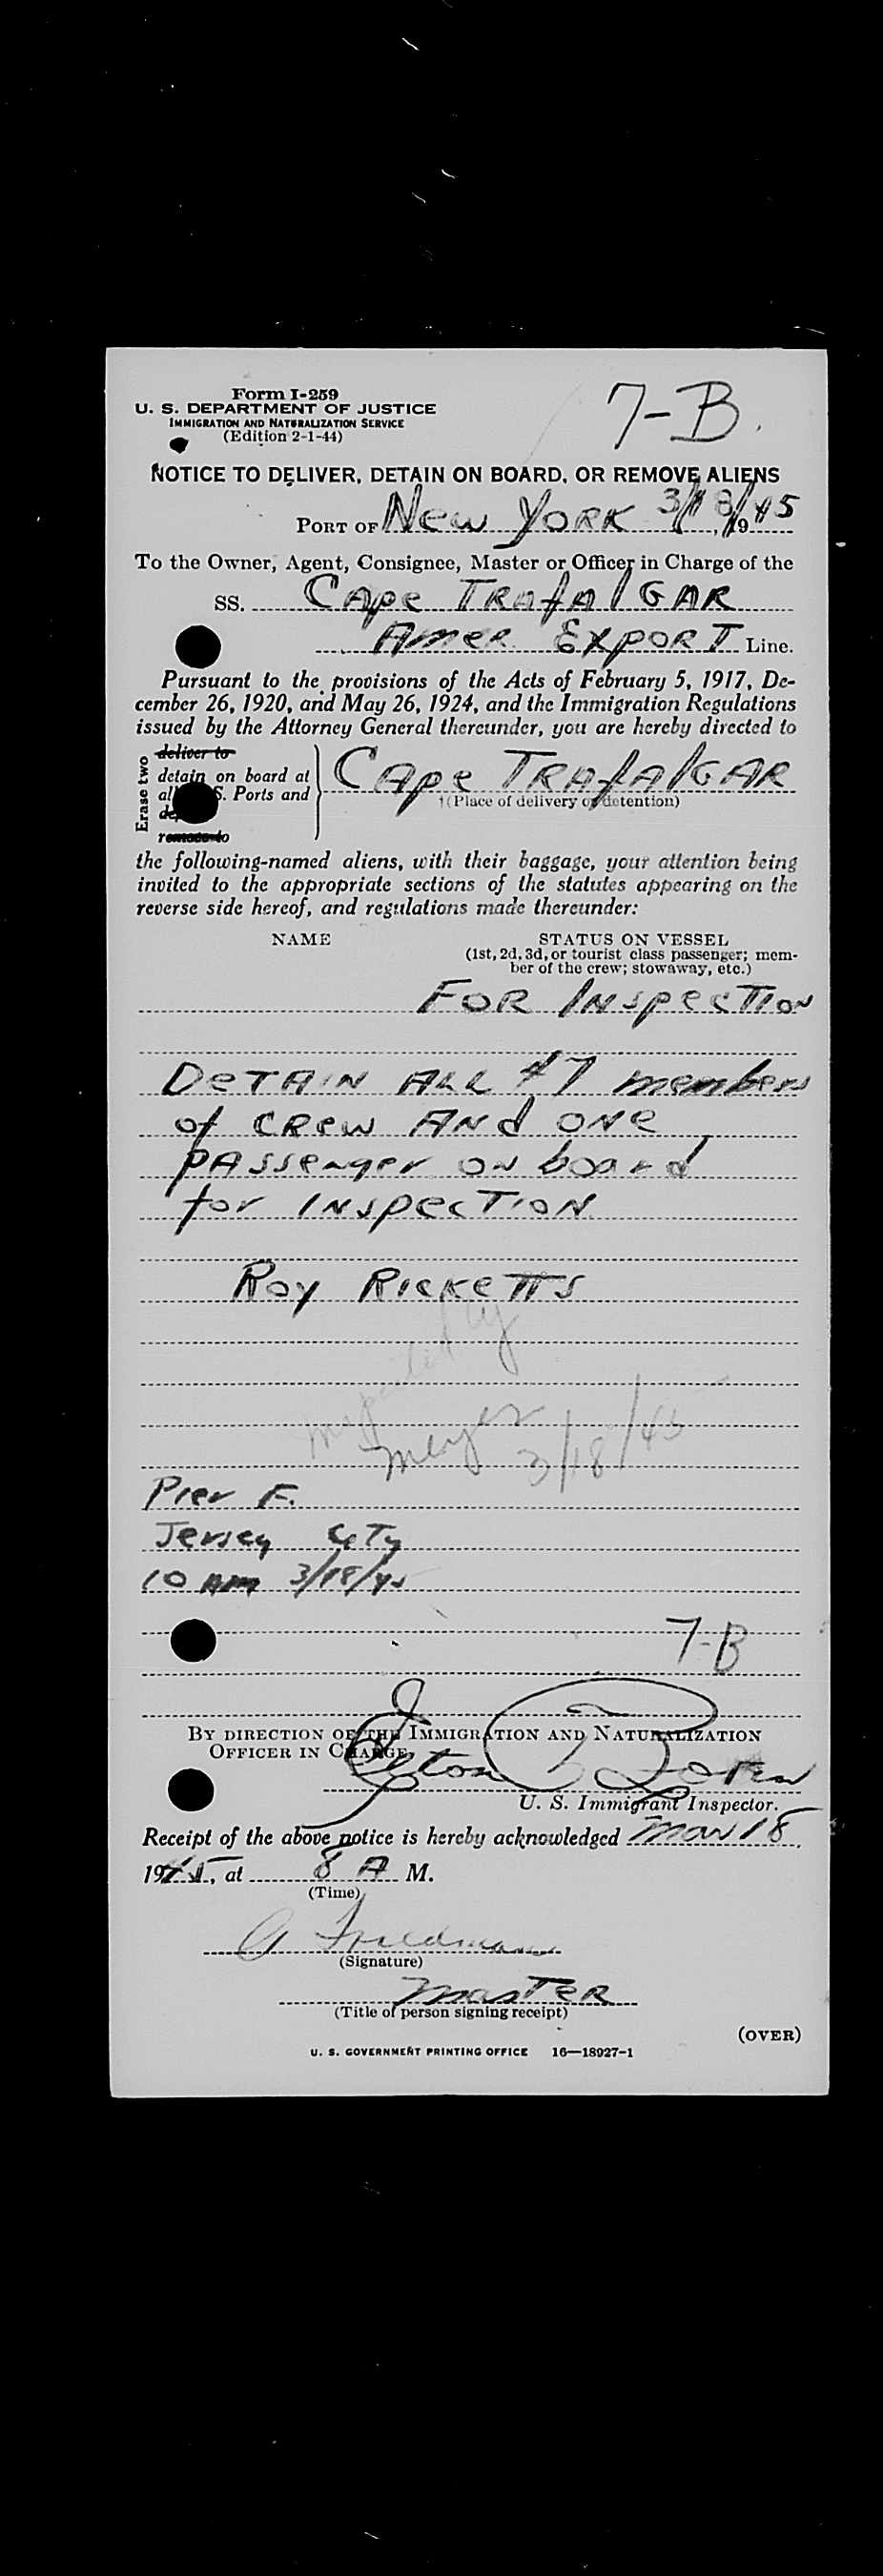 Form I-259
U. S. DEPARTMENT OF JUSTICE
IMMIGRATION AND NATURALIZATION SERVICE
(Edition 2-1-44)
7-B.
NOTICE TO DELIVER, DETAIN ON BOARD, OR REMOVE ALIENS
PORT OF New York 3/18/, 1945
To the Owner, Agent, Consignee, Master or Officer in Charge of the
SS. Cape Trafalgar
Amer Export Line.
Pursuant to the provisions of the Acts of February 5, 1917, De-
cember 26, 1920, and May 26, 1924, and the Immigration Regulations
issued by the Attorney General thereunder, you are hereby directed to
Erase two
deliver to
detain on board at
all S. Ports and
remove to
Cape Trafalgar
(Place of delivery or detention)
the following-named aliens, with their baggage, your attention being
invited to the appropriate sections of the statutes appearing on the
reverse side hereof, and regulations made thereunder:
NAME
STATUS ON VESSEL
(1st, 2d, 3d, or tourist class passenger; mem-
ber of the crew; stowaway, etc.)
For Inspection
Detain all 47 members
of crew and one
passenger on board
for inspection
Roy Ricketts
by
Meyer 3/18/45
Pier F.
Jersey City
10 AM 3/18/45
7-B
BY DIRECTION OF THE IMMIGRATION AND NATURALIZATION
OFFICER IN CHARGE
U. S. Immigrant Inspector.
Receipt of the above notice is hereby acknowledged Mar 18,
1945, at 8 A M.
(Time)
(Signature)
Master
(Title of person signing receipt)
(OVER)
U. S. GOVERNMENT PRINTING OFFICE 16—18927-1